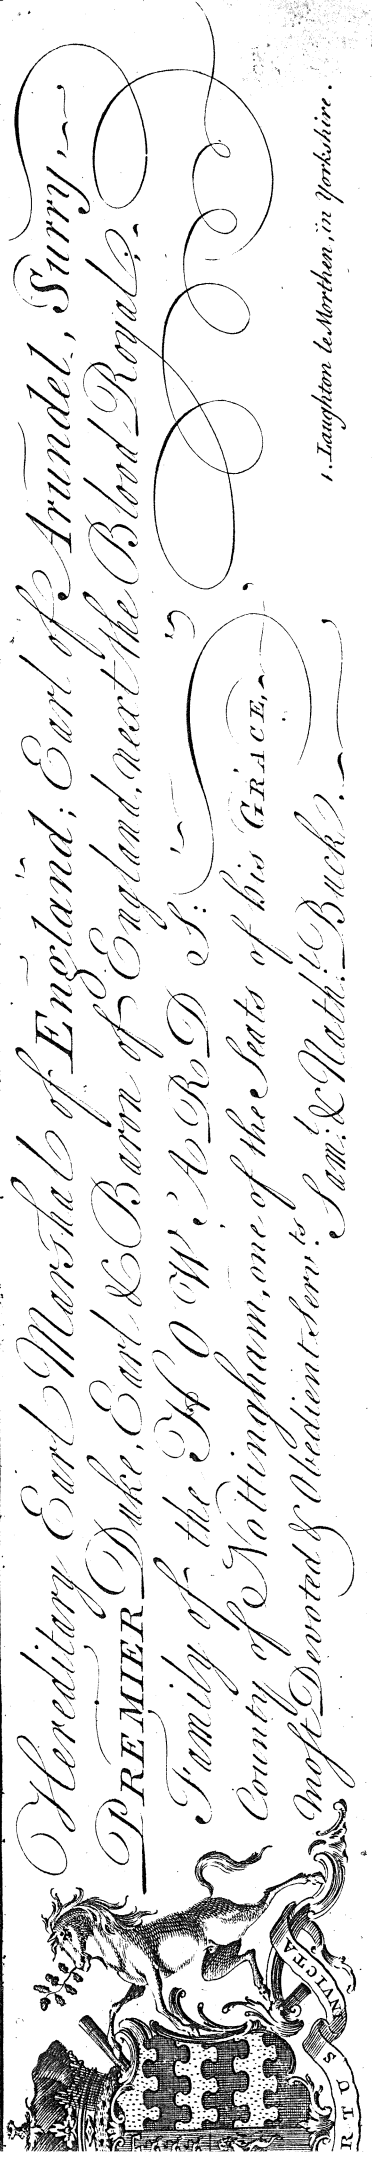 Hereditary Earl Marshal of England; Earl of Arundel, Surry,
PREMIER Duke, Earl & Baron of England, next the Blood Royal,
Family of the HOWARDS:
County of Nottingham, one of the Seats of his GRACE,
most Devoted & Obedient Serv.ts Sam.l & Nath.l Buck.
1. Laughton le Morthen, in Yorkshire.
RTUS
INVICTA